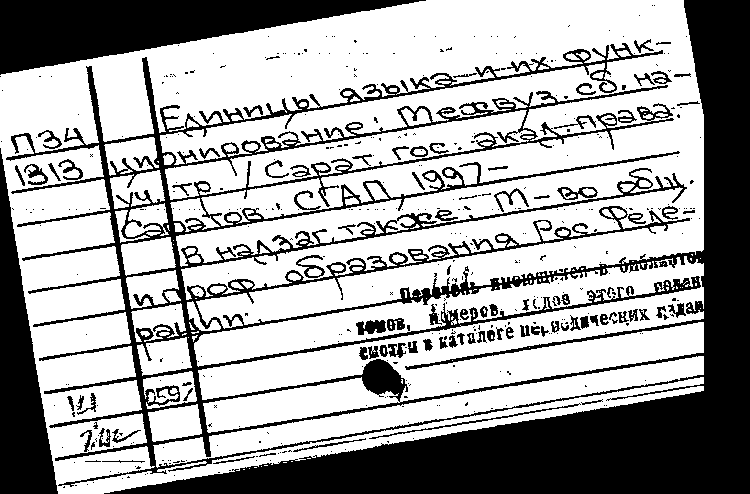 Единицы языка и их функ-
П34 ционирование: Межвуз. сб. на-
1313 уч. тр. / Сарат. гос. акад. права. -
Саратов: СГАП, 1997-
В надзаг. также: М-во общ.
и проф. образования Рос. Феде-
рации.
Перечень имеющихся в библиотеке
томов, номеров, годов этого издан
смотри в каталоге периодических издан
0597